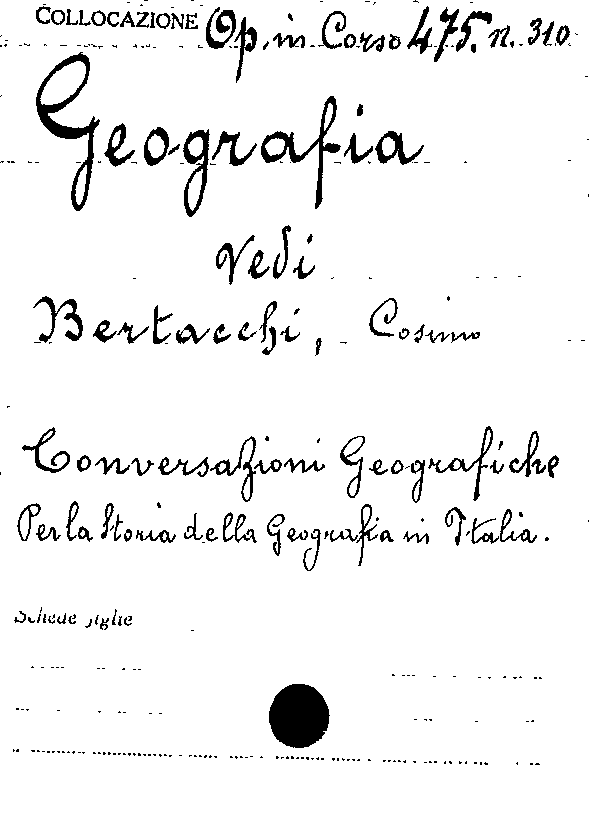 COLLOCAZIONE Op. in Corso 475. n. 310
Geografia
Vedi
Bertacchi, Cosimo
Conversazioni Geografiche
Per la Storia della Geografia in Italia.
Schede figlie